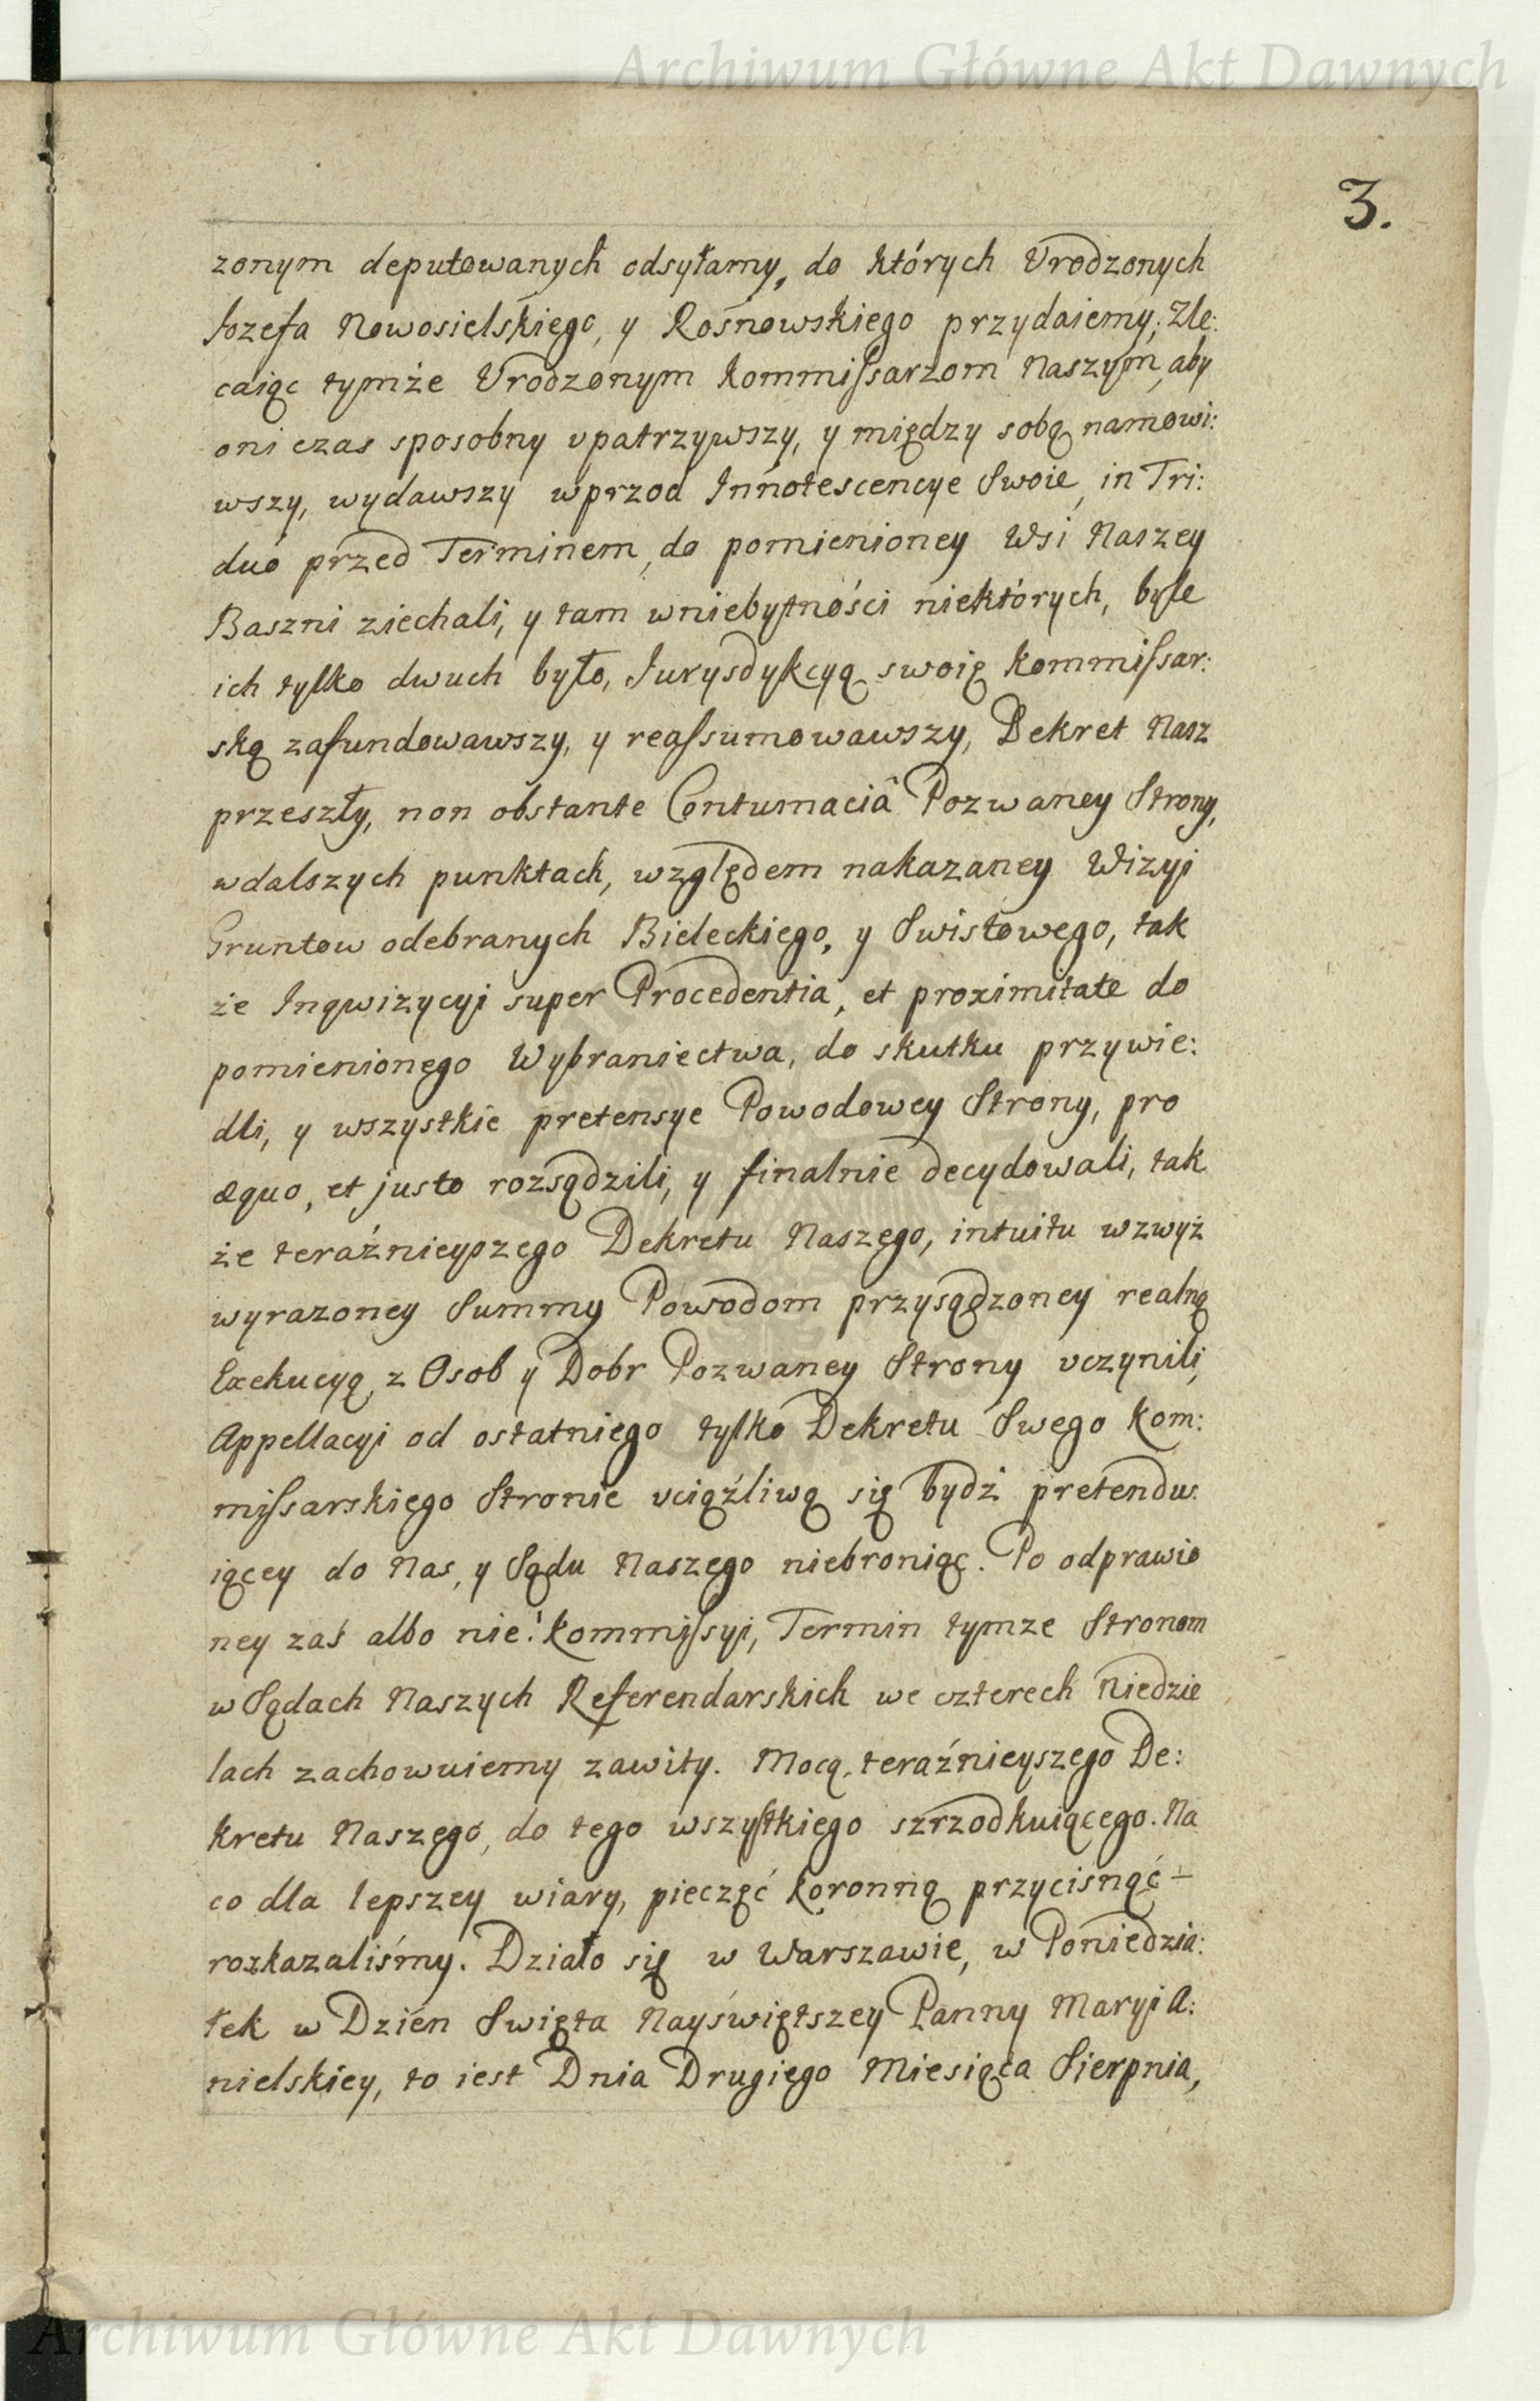 Archiwum Główne Akt Dawnych
3.
zonym deputowanych odsyłamy, do których Vrodzonych
Jozefa Nowosielskiego, y Rosnowskiego przydaiemy; Zle:
caiąc tymże Vrodzonym Kommissarzom Naszym, aby
oni czas sposobny vpatrzywszy, y między sobą namowi:
wszy, wydawszy wprzod Innotescencye Swoie, in Tri:
duo przed Terminem, do pomienioney Wsi Naszey
Baszni ziechali, y tam wniebytności niektórych, byle
ich tylko dwuch było, Jurysdykcyą swoię Kommissar:
ską zafundowawszy, y reassumowawszy, Dekret Nasz
przeszły, non obstante Contumaciâ Pozwaney Strony,
wdalszych punktach, względem nakazaney Wizyi
Gruntow odebranych Bieleckiego, y Swistowego, tak
że Inqwizycyi super Procedentia, et proximitate do
pomienionego Wybraniectwa, do skutku przywie:
dli, y wszystkie pretensye Powodowey Strony, pro
æquo, et justo rozsądzili, y finalnie decydowali, tak
że teraźnieyszego Dekretu Naszego, intuitu wzwyż
wyrazoney Summy Powodom przysądzoney realną
Exekucyą, z Osob y Dobr Pozwaney Strony vczynili,
Appellacyi od ostatniego tylko Dekretu Swego Kom:
missarskiego Stronie vciąźliwą się bydź pretendu:
iącey do Nas, y Sądu Naszego niebroniąc. Po odprawio
ney zaś albo nie! Kommissyi, Termin tymze Stronom
w Sądach Naszych Referendarskich we czterech Niedzie
lach zachowuiemy zawity. Mocą, teraźnieyszego De:
kretu Naszego, do tego wszystkiego szrzodkuiącego. Na
co dla lepszey wiary, pieczęć Koronną przycisnąć –
rozkazaliśmy. Działo się w Warszawie, w Poniedzia:
łek w Dzień Swięta Nayświętszey Panny Maryi A:
nielskiey, to iest Dnia Drugiego Miesiąca Sierpnia,
Archiwum Główne Akt Dawnych